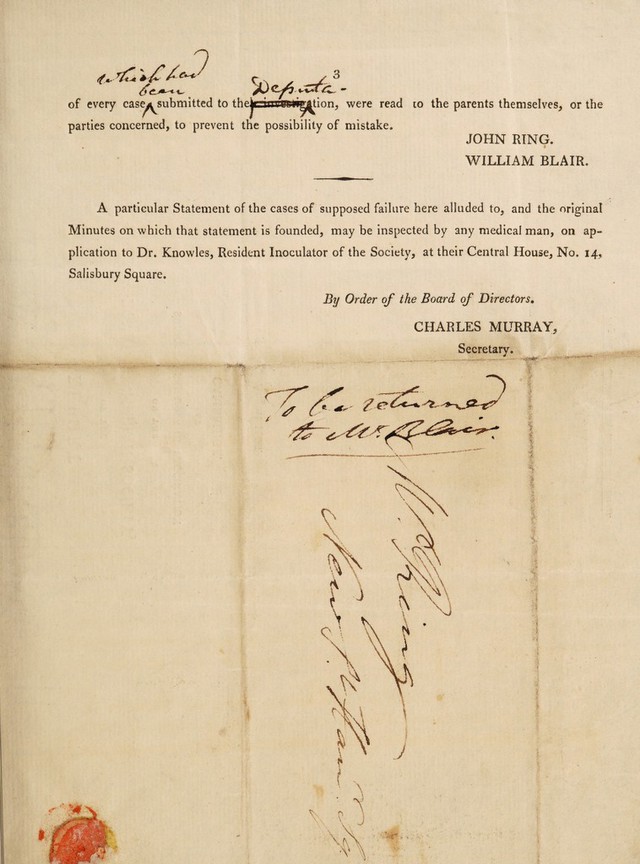 which had
been
Deputa-
3
of every case submitted to the investigation, were read to the parents themselves, or the
parties concerned, to prevent the possibility of mistake.
JOHN RING.
WILLIAM BLAIR.
A particular Statement of the cases of supposed failure here alluded to, and the original
Minutes on which that statement is founded, may be inspected by any medical man, on ap-
plication to Dr. Knowles, Resident Inoculator of the Society, at their Central House, No. 14,
Salisbury Square.
By Order of the Board of Directors.
CHARLES MURRAY,
Secretary.
To be returned
to Mr. Blair.
Ring
New St. Han. Sq.